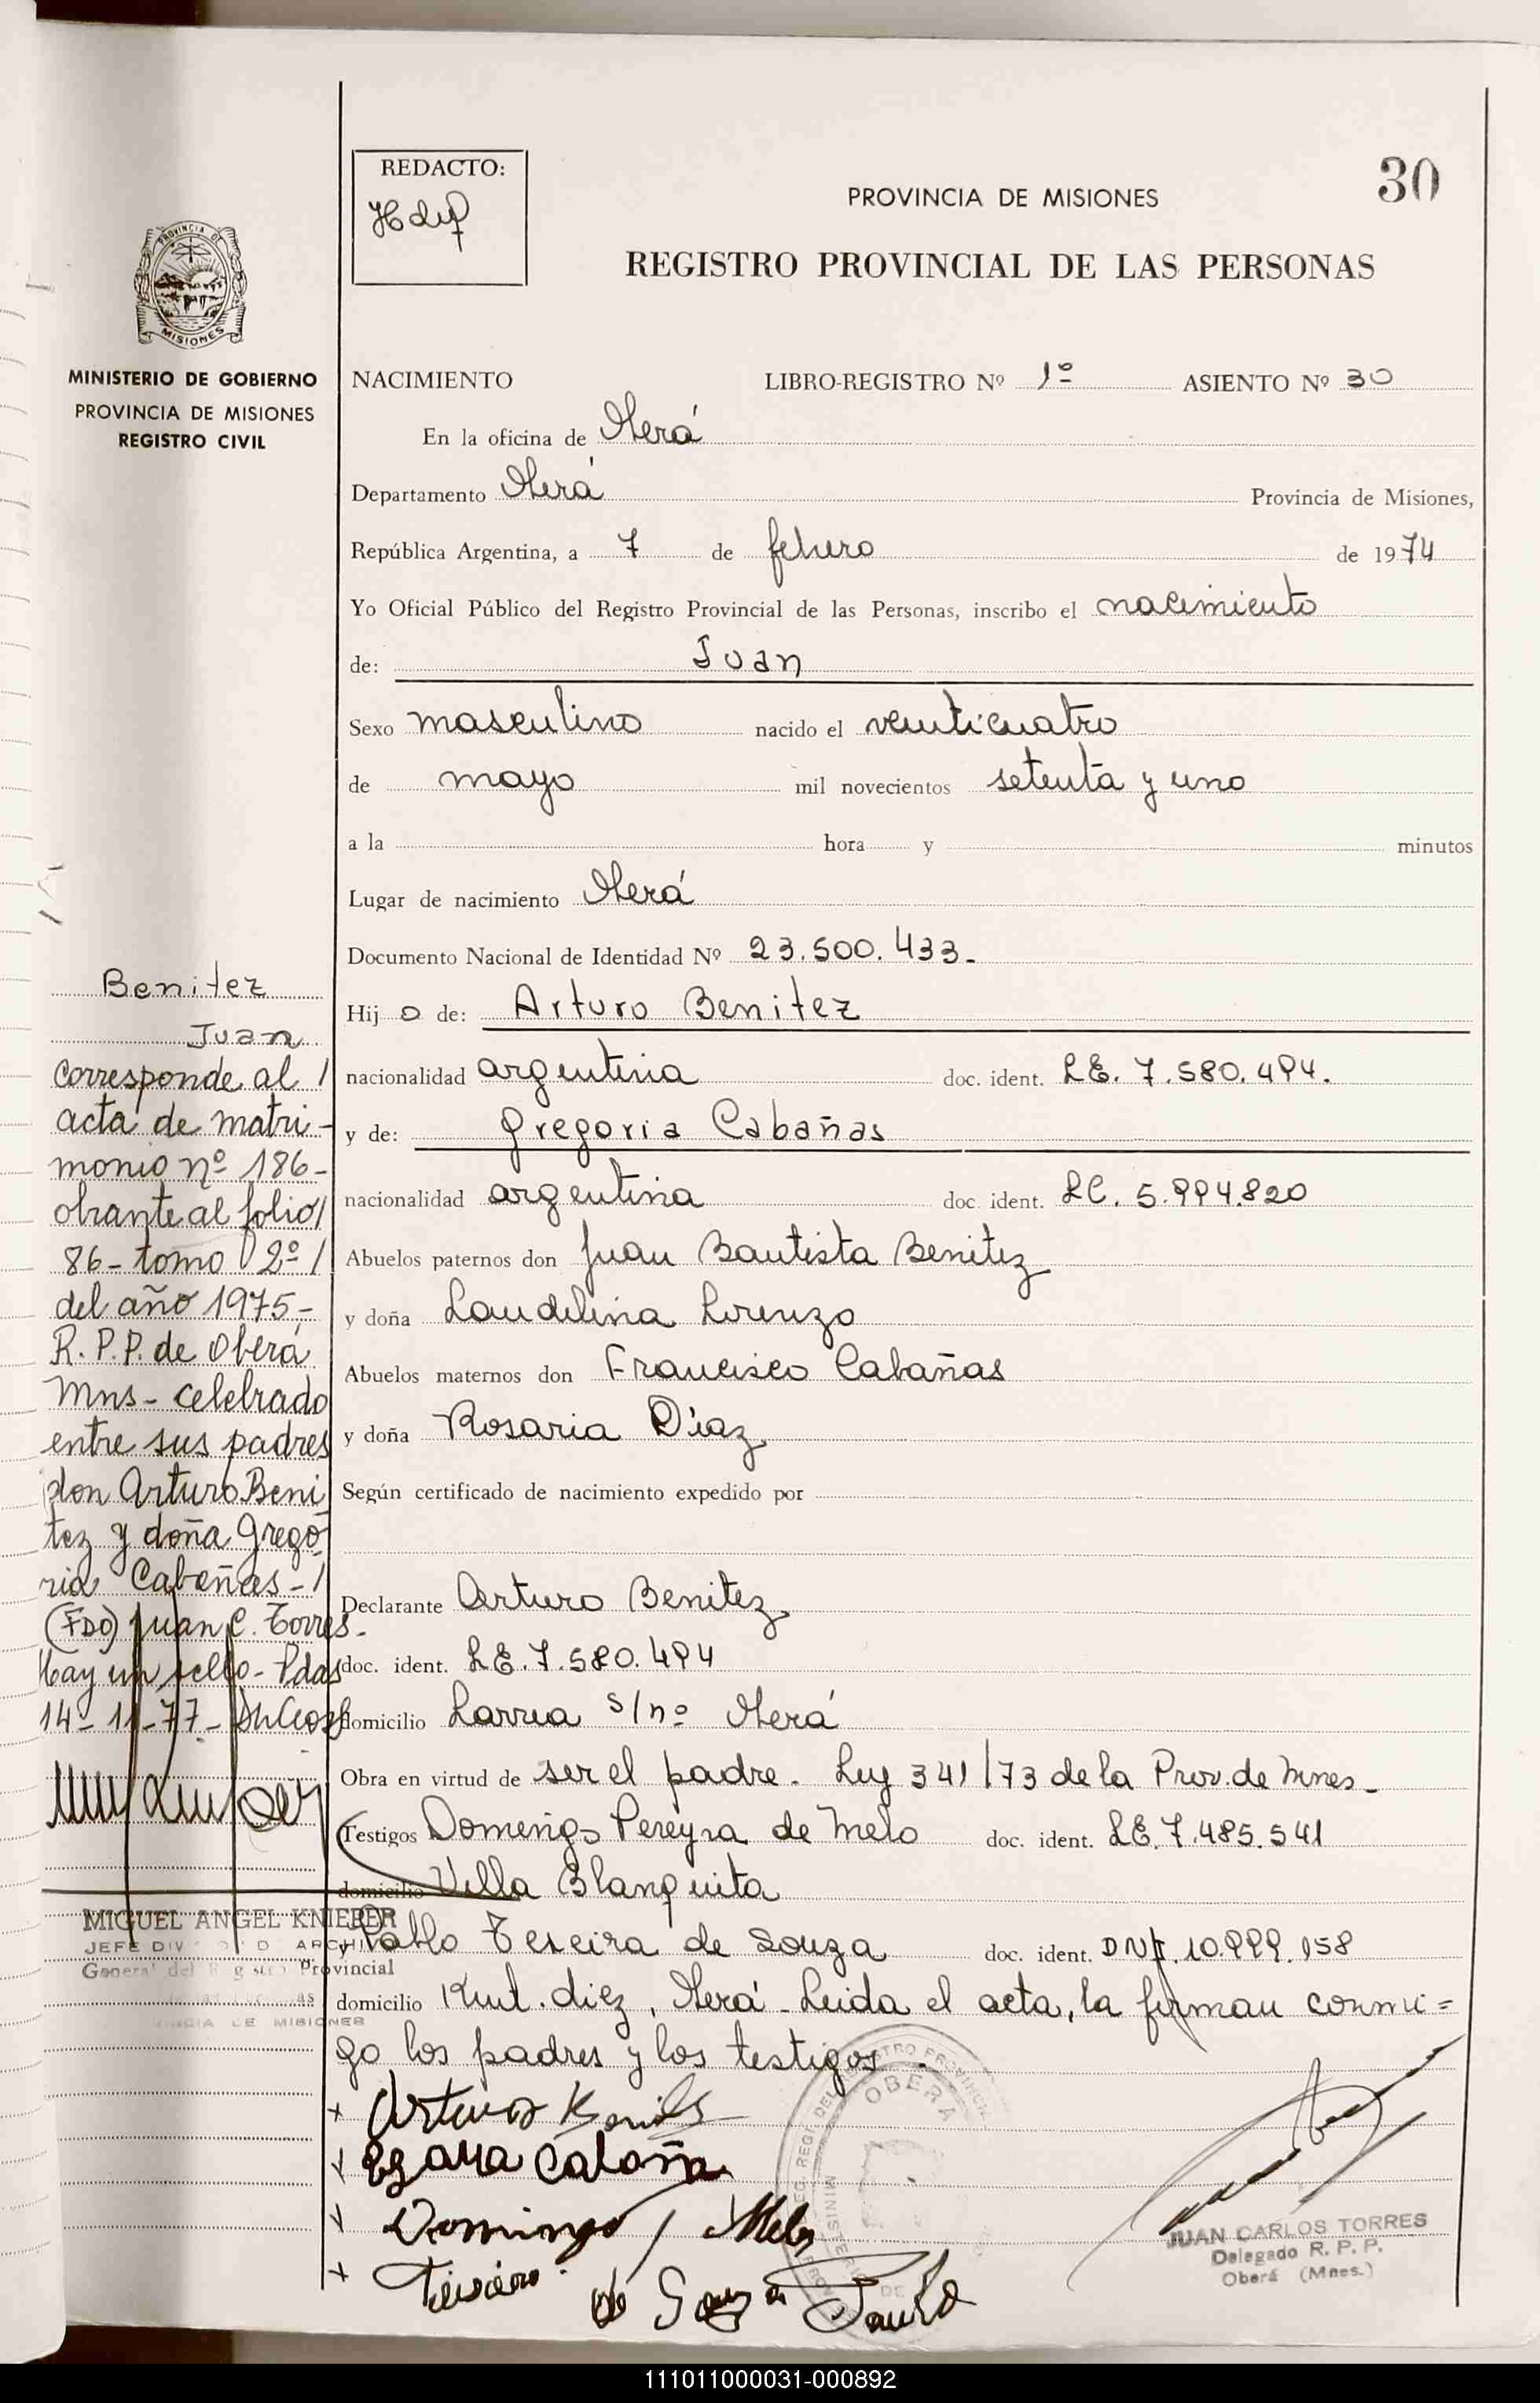 30
REDACTO:
PROVINCIA DE MISIONES
REGISTRO PROVINCIAL DE LAS PERSONAS
PROVINCIA DE
MISIONES
MINISTERIO DE GOBIERNO
PROVINCIA DE MISIONES
REGISTRO CIVIL
NACIMIENTO LIBRO-REGISTRO Nº 1º ASIENTO Nº 30
En la oficina de Oberá
Departamento Oberá Provincia de Misiones,
República Argentina, a 7 de febrero de 1974
Yo Oficial Público del Registro Provincial de las Personas, inscribo el nacimiento
de: Juan
Sexo masculino nacido el veinticuatro
de mayo mil novecientos setenta y uno
a la hora y minutos
Lugar de nacimiento Oberá
Documento Nacional de Identidad Nº 23.500.433-
Hijo de: Arturo Benitez
nacionalidad argentina doc. ident. LE. 7.580.494.
y de: Gregoria Cabañas
nacionalidad argentina doc. ident. LC. 5.994.820
Abuelos paternos don Juan Bautista Benitez
y doña Laudelina Lorenzo
Abuelos maternos don Francisco Cabañas
y doña Rosaria Díaz
Según certificado de nacimiento expedido por
Declarante Arturo Benitez
doc. ident. LE. 7.580.494
domicilio Larrea s/nº Oberá
Obra en virtud de ser el padre. Ley 341/73 de la Prov. de Mnes-
Testigos Domingos Pereyra de Melo doc. ident. LE. 7.485.541
domicilio Villa Blanquita
y Pablo Teseira de Souza doc. ident. DNI. 10.999.158
domicilio Kmt. diez, Oberá - Leida el acta, la firman conmi=
go los padres y los testigos.
Benitez
Juan
Corresponde al /
acta de matri-
monio nº 186-
obrante al folio/
86- tomo 2º /
del año 1975,-
R.P.P. de Oberá
Mns- celebrado
entre sus padres
don Arturo Beni
tez y doña Grego
ria Cabañas-/
(FDO) Juan C. Torres-
Hay un sello- Pdas
14-11-77-
MIGUEL ANGEL KNIEPER
JEFE DIV ARCHI
General del Registro Provincial
de las Personas
MISIONES
x Arturo Benites
x Cabaña
x Domingo Melo
x Teixeira de Souza Paulo
OBERA
JUAN CARLOS TORRES
Delegado R. P. P.
Oberá (Mnes.)
111011000031-000892